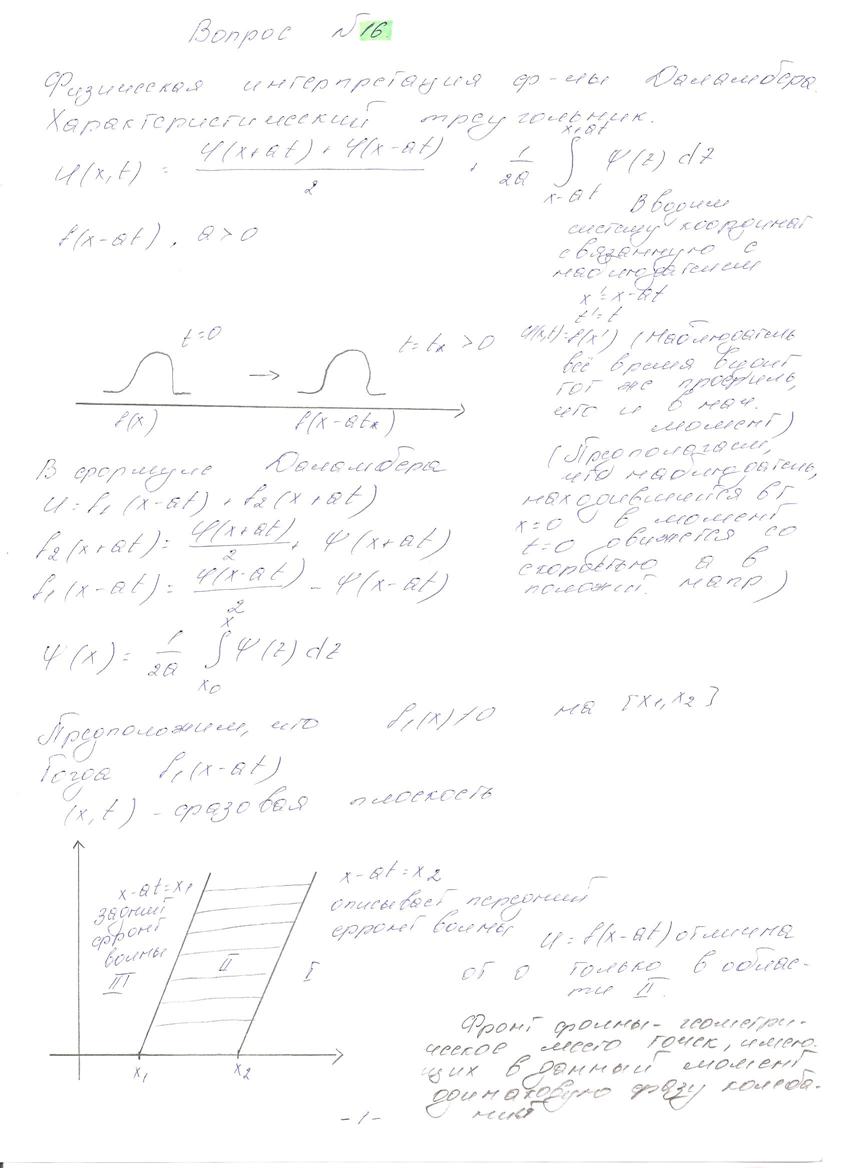 Вопрос №16.
Физическая интерпретация ф-лы Даламбера.
Характеристический треугольник.
u(x,t) = (φ(x+at) + φ(x-at))/2 + 1/2a ∫_{x-at}^{x+at} ψ(z) dz
f(x-at), a>0
Вводим
систему координат
связанную с
наблюдателем
x'=x-at
t'=t
u(x,t)=f(x') (Наблюдатель
всё время видит
тот же профиль,
что и в нач.
момент)
(Предполагаем,
что наблюдатель,
находившийся в т
x=0 в момент
t=0 движется со
скоростью a в
положит. напр)
t=0
t=tₓ >0
f(x)
f(x-atₓ)
В формуле Даламбера
u=f₁(x-at)+f₂(x+at)
f₂(x+at)= φ(x+at)/2 + Ψ(x+at)
f₁(x-at)= φ(x-at)/2 - Ψ(x-at)
Ψ(x)= 1/2a ∫_{x₀}^{x} ψ(z) dz
Предположим, что f₁(x)≠0 на [x₁,x₂]
Тогда f₁(x-at)
(x,t) - фазовая плоскость
x-at=x₁
задний
фронт
волны
III
II
I
x₁
x₂
x-at=x₂
описывает передний
фронт волны
u=f(x-at) отлична
от 0 только в облас-
ти II.
Фронт фолны- геометри-
ческое место точек, имею-
щих в данный момент
одинаковую фазу колеба-
ний
-1-